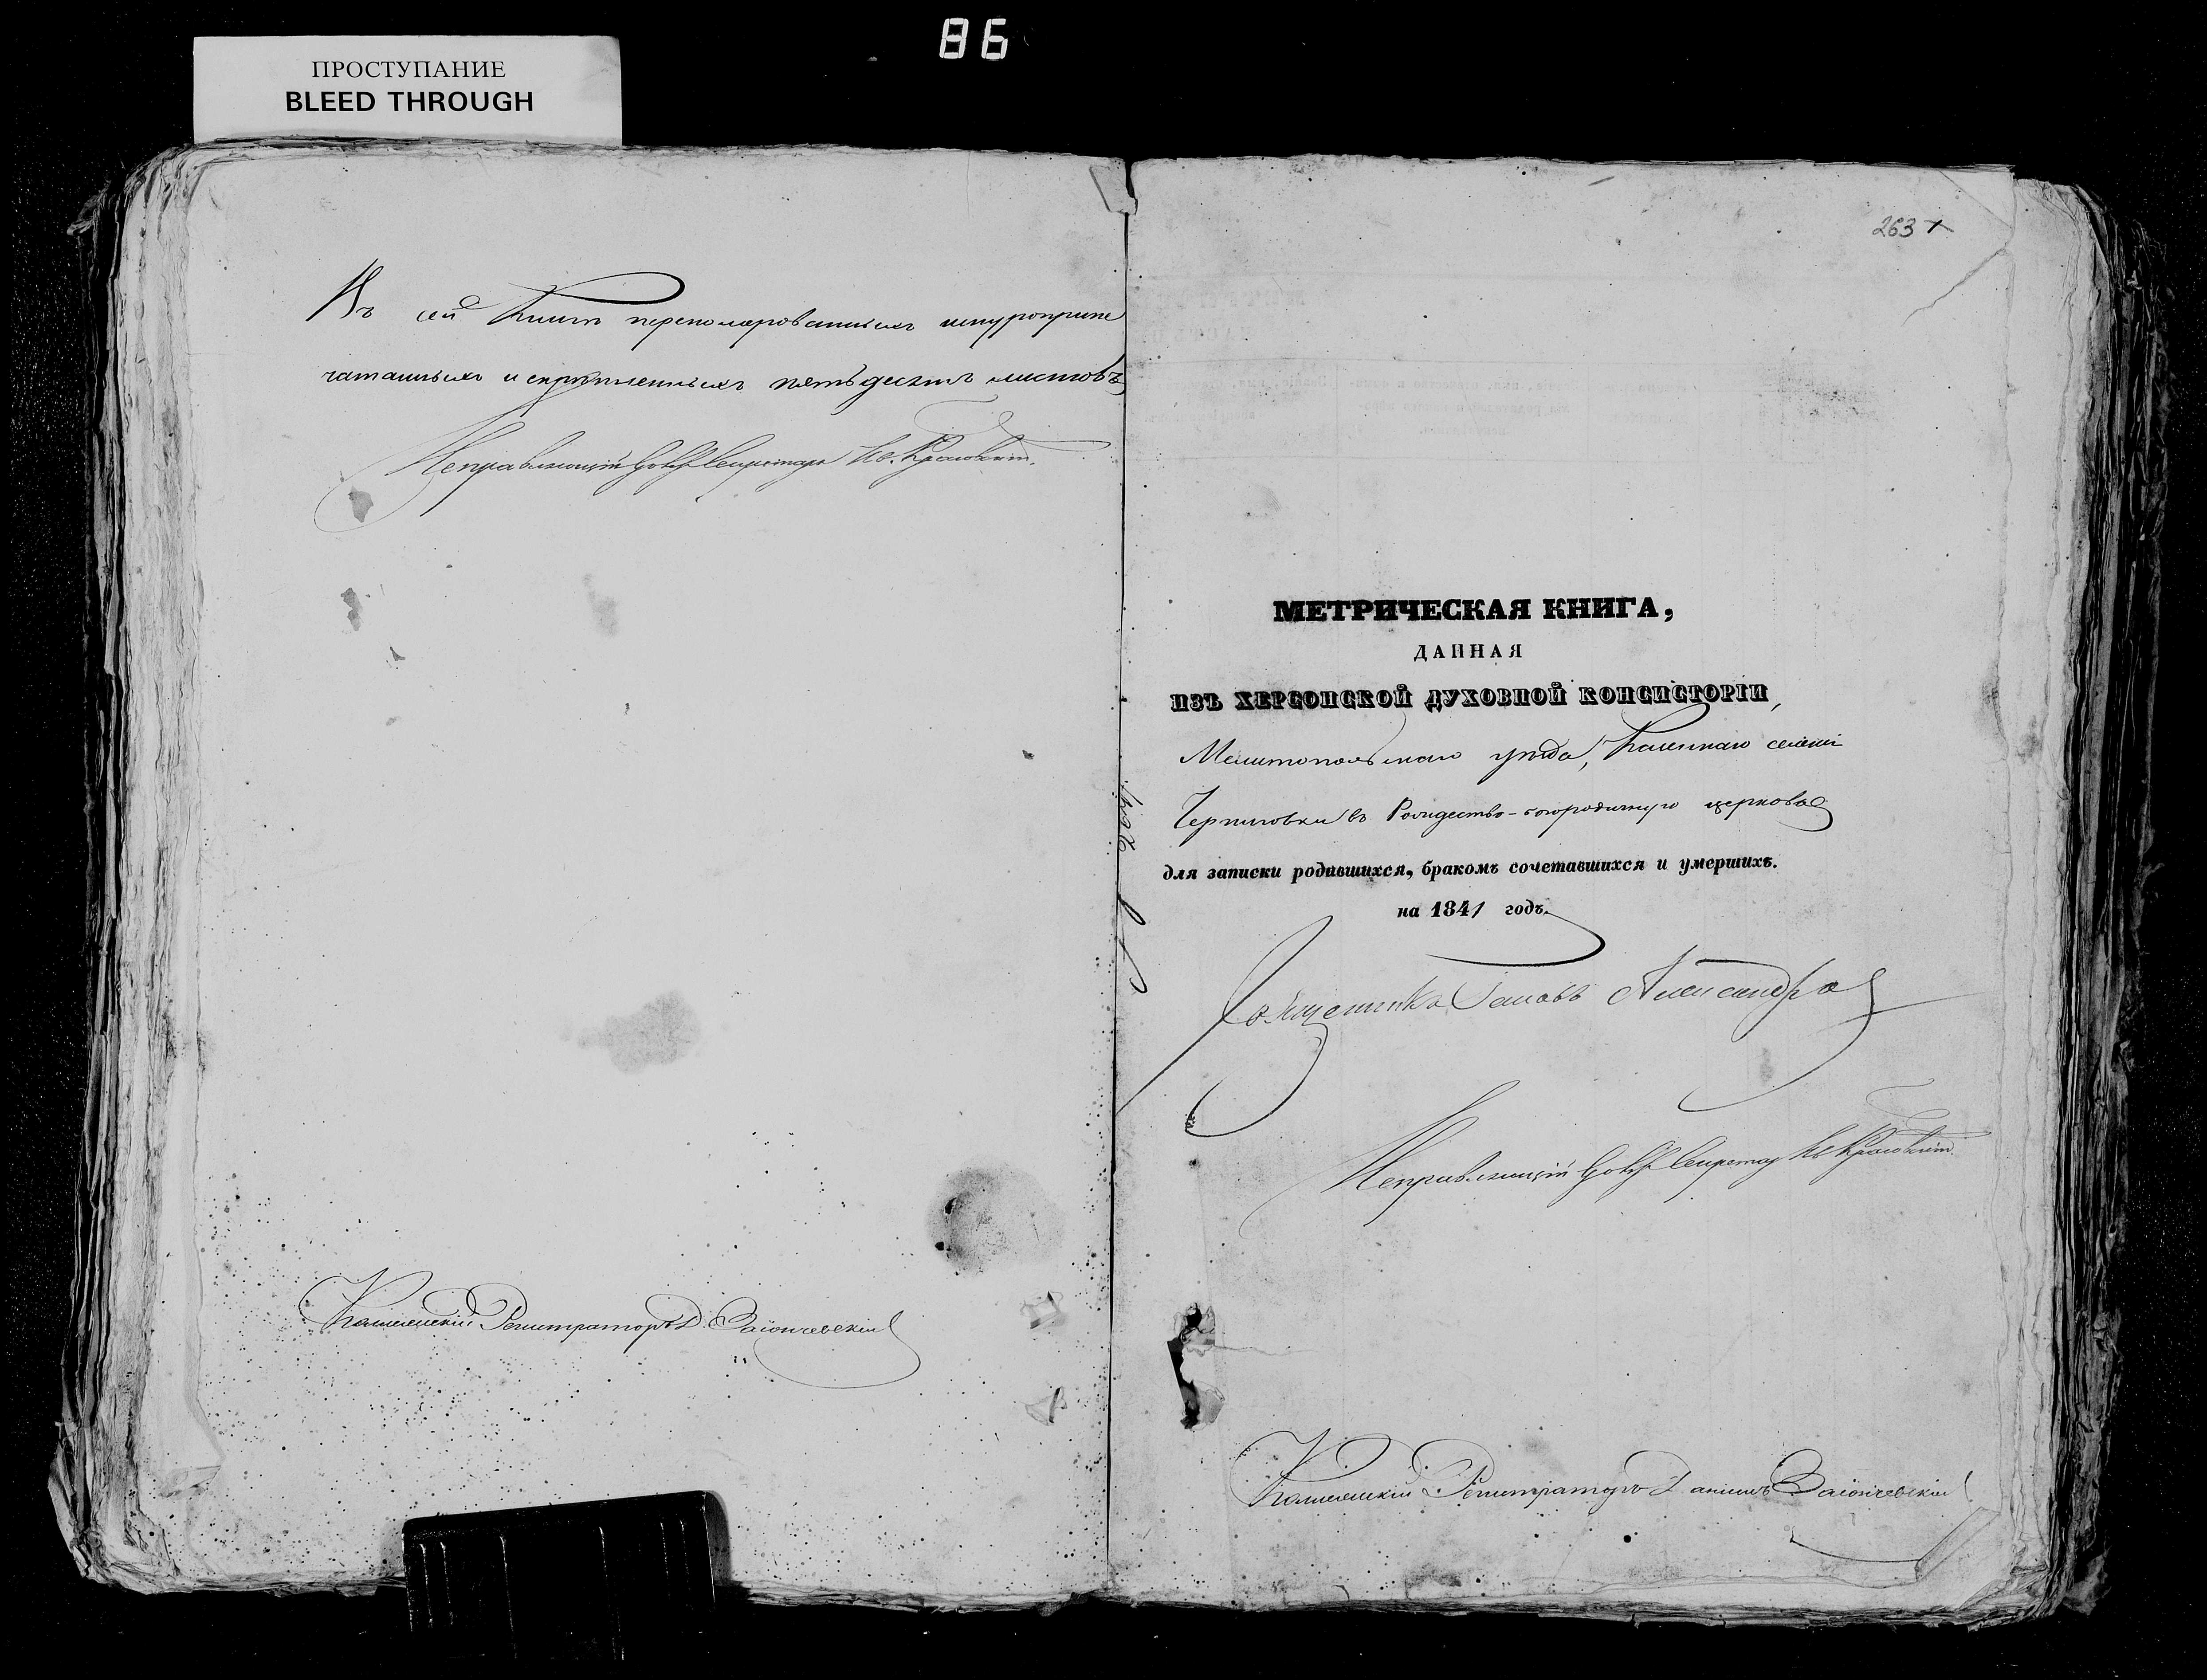 86
ПРОСТУПАНИЕ
BLEED THROUGH
Въ сей Книгѣ переномерованныхъ шнуроприпе
чатанныхъ и скрѣпленныхъ пятьдесятъ листовъ
Исправляющій Секретаря
Коллежскій Регистраторъ Д. Заіончевскій
263
МЕТРИЧЕСКАЯ КНИГА,
ДАННАЯ
ИЗЪ ХЕРСОНСКОЙ ДУХОВНОЙ КОНСИСТОРІИ,
Мелитопольскаго уѣзда, Казеннаго селенія
Черниговки въ Рождество-Богородичную церковь
для записки родившихся, бракомъ сочетавшихся и умершихъ.
на 1841 годъ.
Александро
Исправляющій Секретар
Коллежскій Регистраторъ Даніилъ Заіончевскій